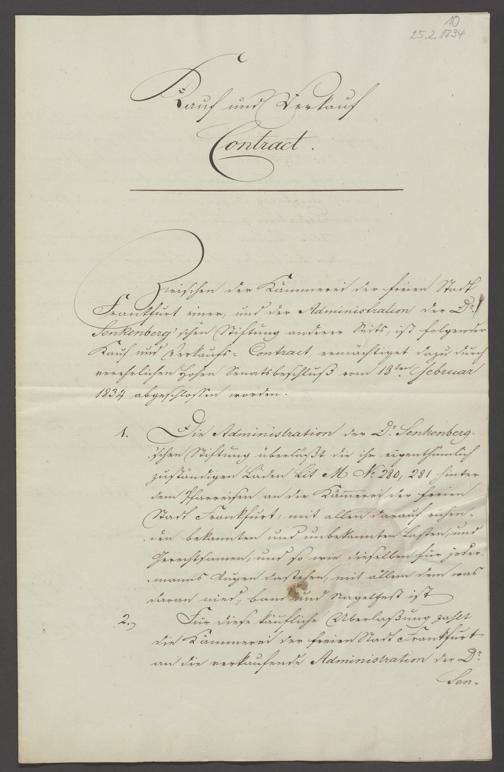 10
25.2.1834
Kauf und Verkauf
Contract.
Zwischen der Kämmerei der freien Stadt
Frankfurt einer, und der Administration der Dr.
Senkenberg'schen Stiftung anderer Seits, ist folgender
Kauf und Verkaufs-Contract, ermächtiget dazu durch
verehrlichen hohen Senatsbeschluß vom 18ten Februar
1834 abgeschlossen worden.
1. Die Administration der Dr. Senkenberg-
'schen Stiftung überläßt die ihr eigenthümlich
zuständigen Läden Lit. M No. 280, 281 hinter
dem Pfarreisen an die Kämmerei der freien
Stadt Frankfurt, mit allen darauf ruhen-
den bekannten und unbekannten Lasten, und
Gerechtsamen, und so wie dieselben für jeder-
manns Augen dastehen, mit allem dem was
daran nied, band und Nagelfest ist
2.) Für diese käufliche Überlaßung zahlt
die Kämmerei der freien Stadt Frankfurt
an die verkaufende Administration der Dr.
Sen-